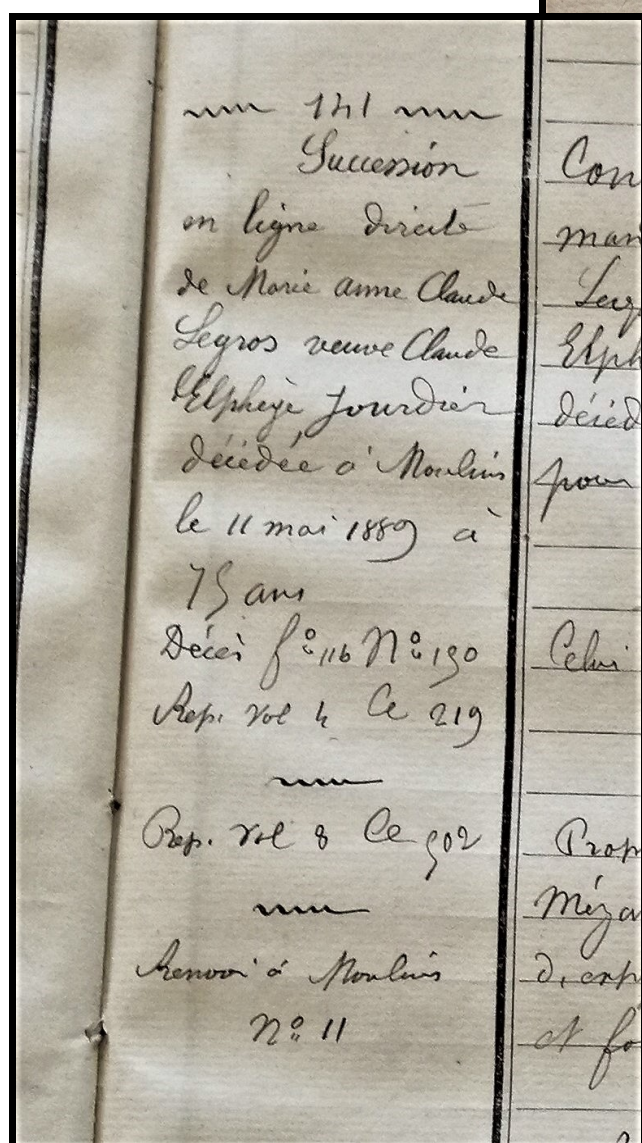 141
Succession
en ligne directe
de Marie anne Claude
Legros veuve Claude
Elphège Jourdier
décédée à Moulins
le 11 mai 1889 à
75 ans
Décès f° 116 N° 190
Rep. vol 4 Ce 219
Rep. Vol 8 Ce 502
Renvoi à Moulins
N° 11
Con
man
Elph
décéd
pour
Celui
Prop
Méza
et fo